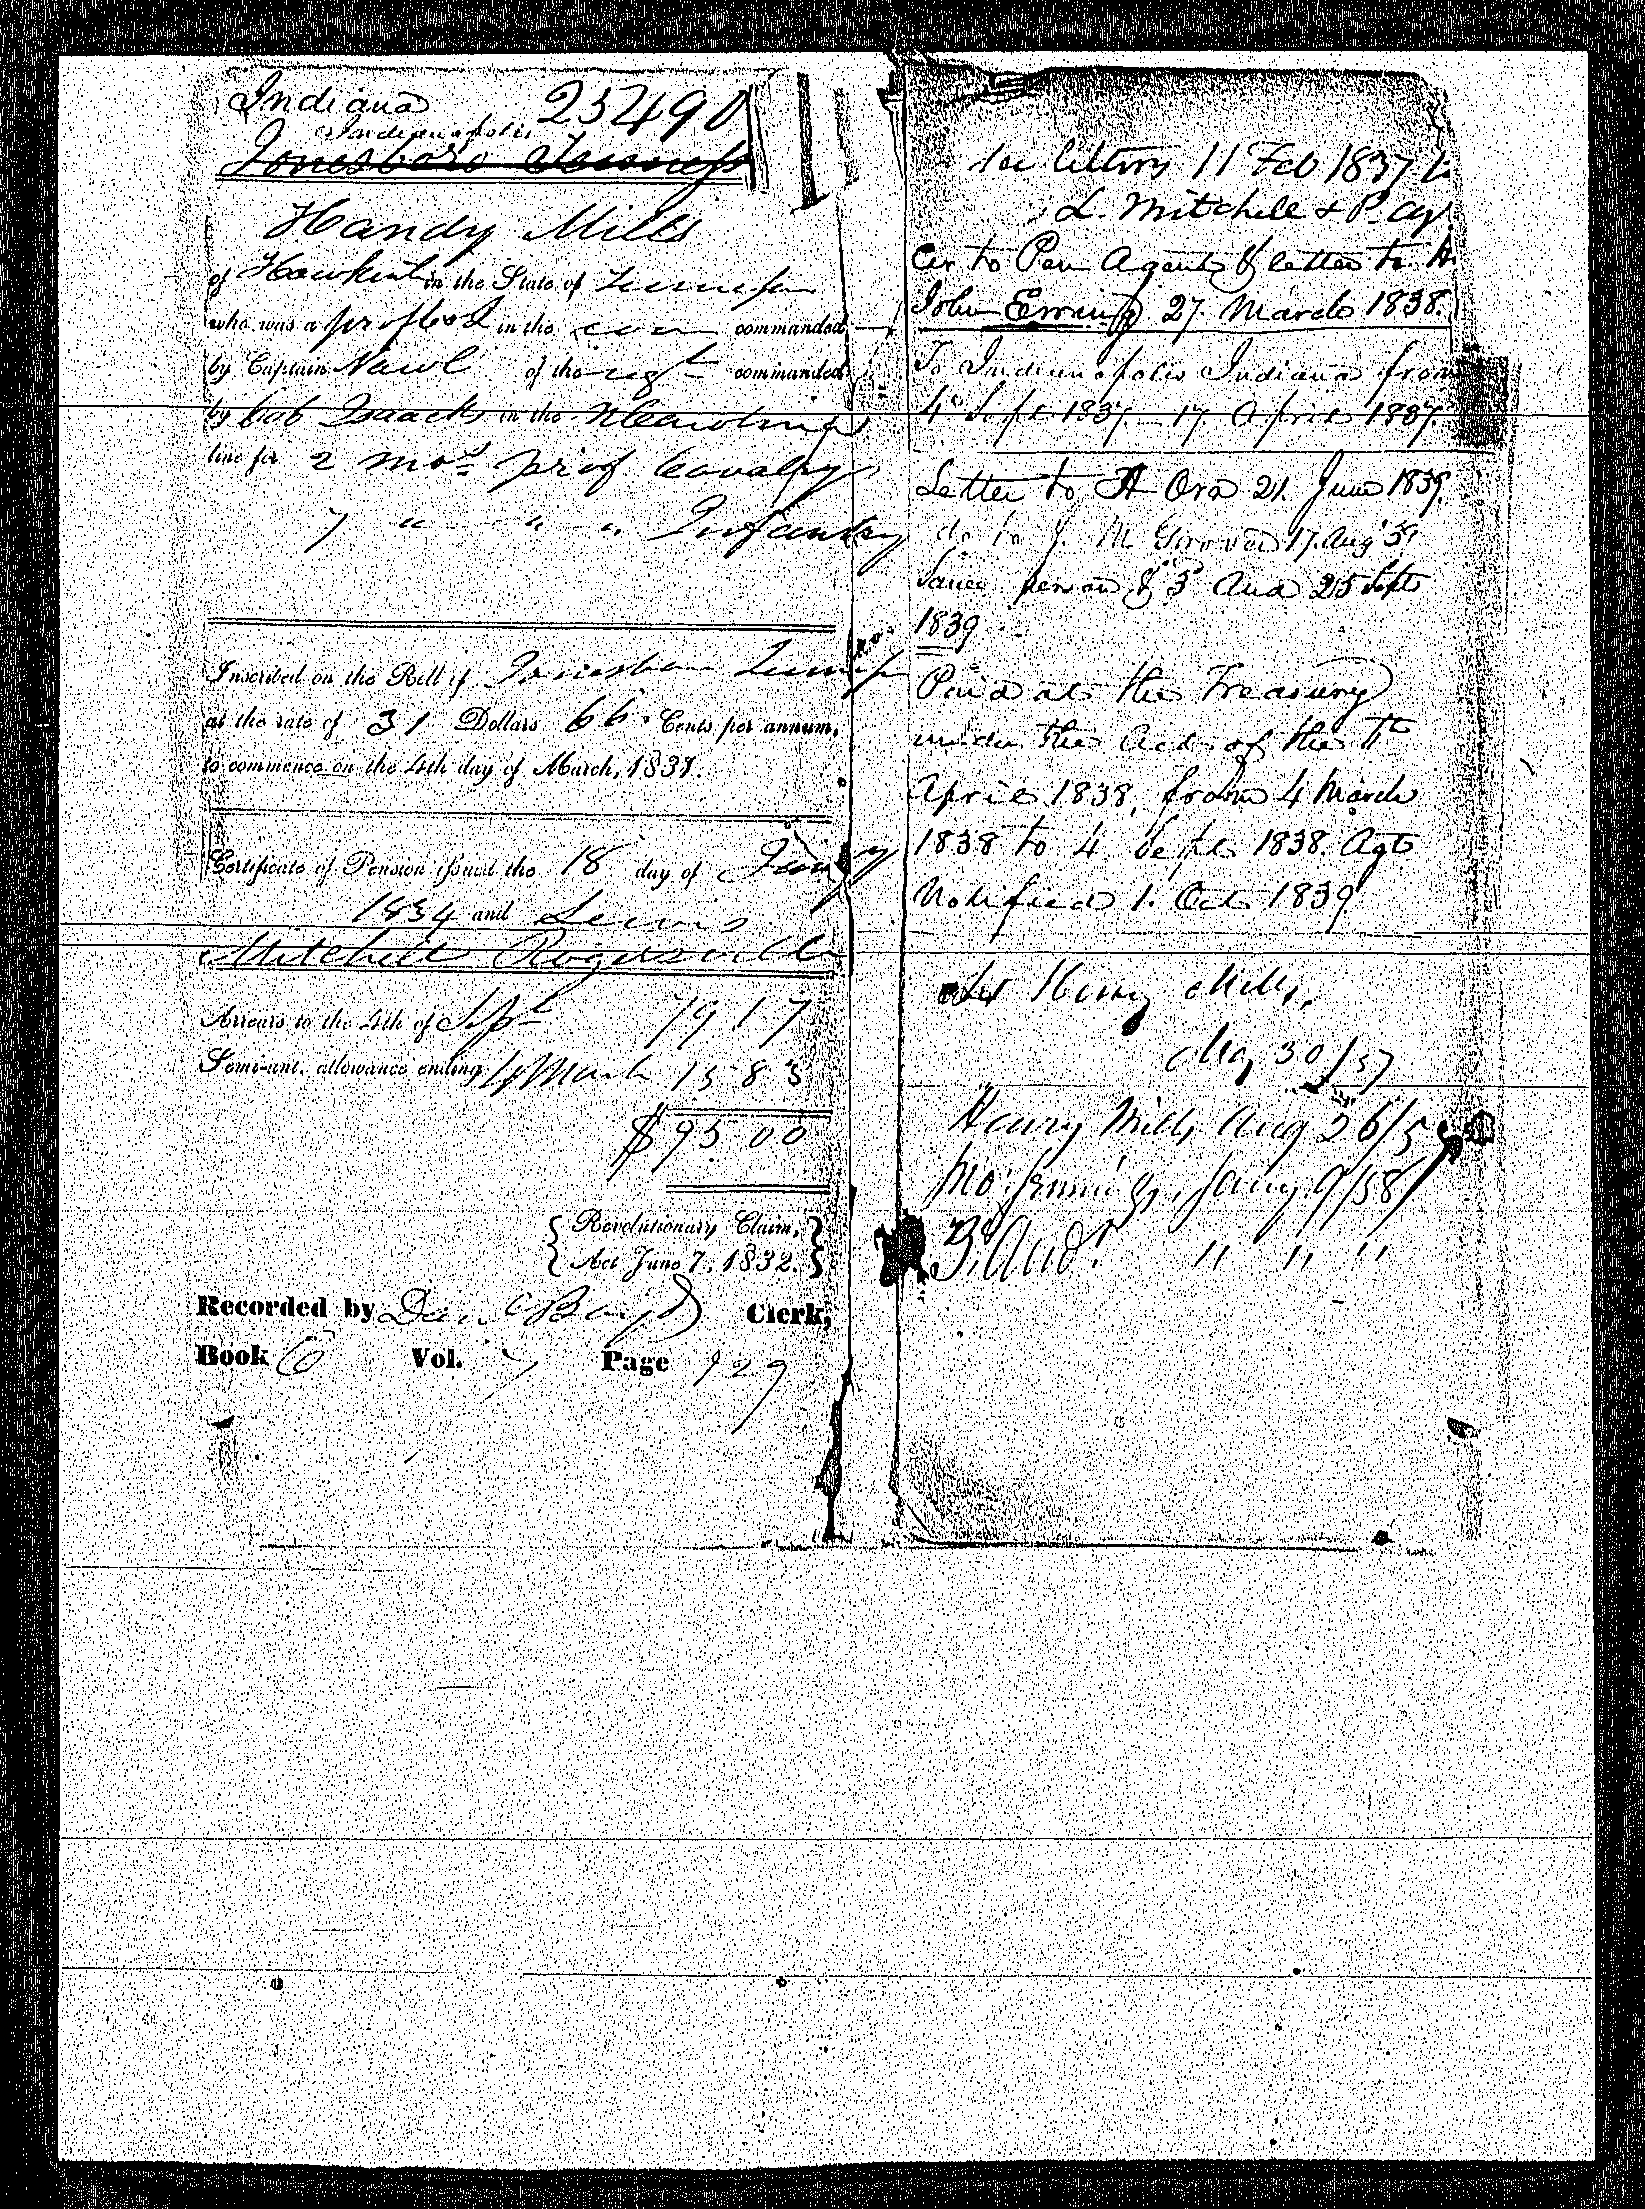 Indiana 25490
Indianapolis
Jonesboro Tennessee
Handy Mills
of Hawkins in the State of Tennessee
who was a in the commanded
by Captain of the regt commanded
by Col Isaacks in the N Carolina
line for 2 mos priv of Cavalry
7 " " " Infantry
Inscribed on the Roll of Jonesboro
at the rate of 31 Dollars 66 Cents per annum,
to commence on the 4th day of March, 1831.
Certificate of Pension issued the 18 day of
1834 and Lewis
Mitchell Rogersville
Arrears to the 4th of Sept 79.17
Semi-anl. allowance ending 4 March 15.83
$95.00
{ Revolutionary Claim, }
{ Act June 7, 1832. }
Recorded by Boyd Clerk,
Book Vol. 7 Page 129
See letters 11 Feb 1837 to
L. Mitchell & P. Ag
to Pen Agent & letter to H
John 27 March 1838.
To Indianapolis Indiana from
4 Sept. 1837. 17 April 1837.
Letter to H Orr 21 June 1839
do to J. M. 17 Aug 39
Same person & 25 Sept
1839
Paid at the Treasury
under the Act of the
April 1838, from 4 March
1838 to 4 Sept. 1838. Agt
Notified 1. Oct 1839
Let Henry Mills,
30/57
Henry Mills Aug 26/5
Jany. 9/58
3d Audr. " " "